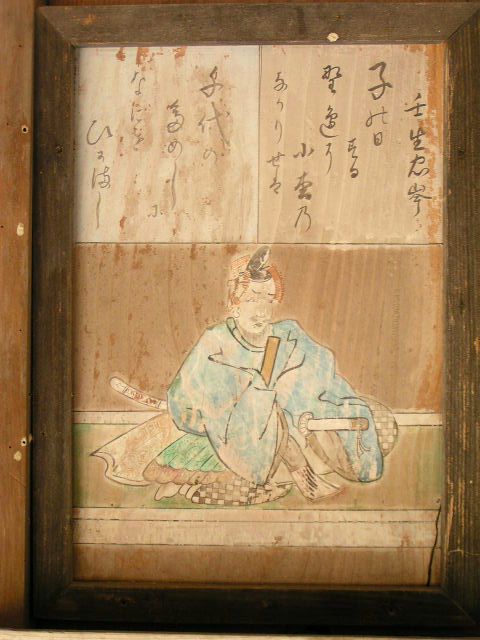 壬生忠岑
子の日
する
野邊に
小松乃
なかりせは
千代の
ためし
に
なにを
ひかまし